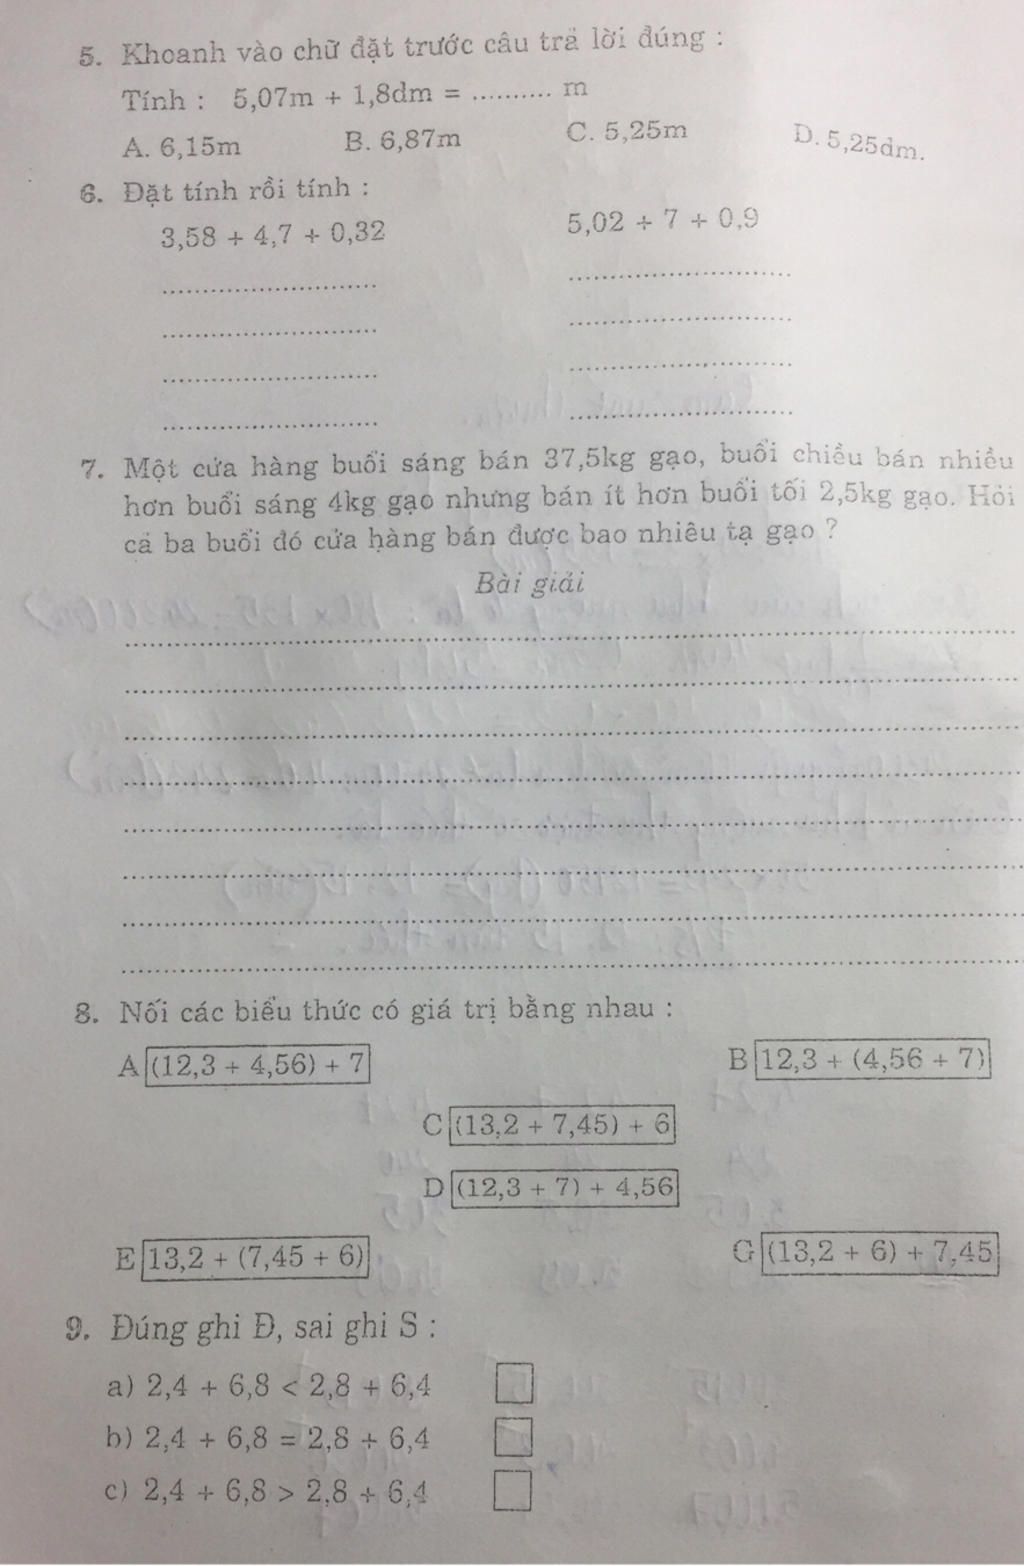 5. Khoanh vào chữ đặt trước câu trả lời đúng :
Tính : 5,07m + 1,8dm = .......... m
A. 6,15m B. 6,87m C. 5,25m D. 5,25dm.
6. Đặt tính rồi tính :
3,58 + 4,7 + 0,32 5,02 + 7 + 0,9
7. Một cửa hàng buổi sáng bán 37,5kg gạo, buổi chiều bán nhiều
hơn buổi sáng 4kg gạo nhưng bán ít hơn buổi tối 2,5kg gạo. Hỏi
cả ba buổi đó cửa hàng bán được bao nhiêu tạ gạo ?
Bài giải
8. Nối các biểu thức có giá trị bằng nhau :
A (12,3 + 4,56) + 7 B 12,3 + (4,56 + 7)
C (13,2 + 7,45) + 6
D (12,3 + 7) + 4,56
E 13,2 + (7,45 + 6) G (13,2 + 6) + 7,45
9. Đúng ghi Đ, sai ghi S :
a) 2,4 + 6,8 < 2,8 + 6,4
b) 2,4 + 6,8 = 2,8 + 6,4
c) 2,4 + 6,8 > 2,8 + 6,4